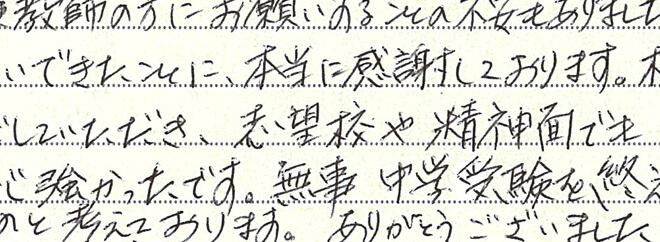 教師の方にお願いすることの不安もありました
いできたことに、本当に感謝しております。本
していただき、志望校や精神面でも
心強かったです。無事 中学受験を終え
のと考えております。ありがとうございました